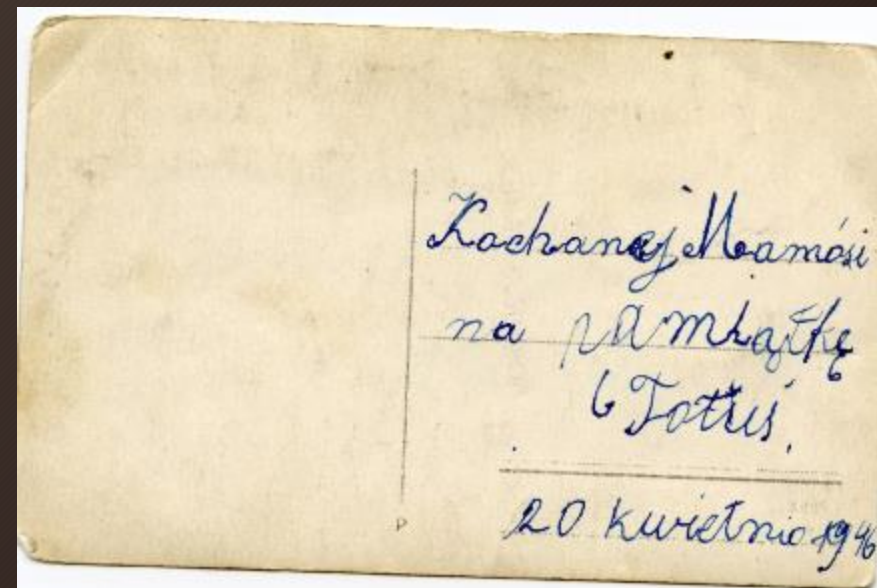 Kochanej Mamósi
na pamiątkę
20 kwietnia 1946
P